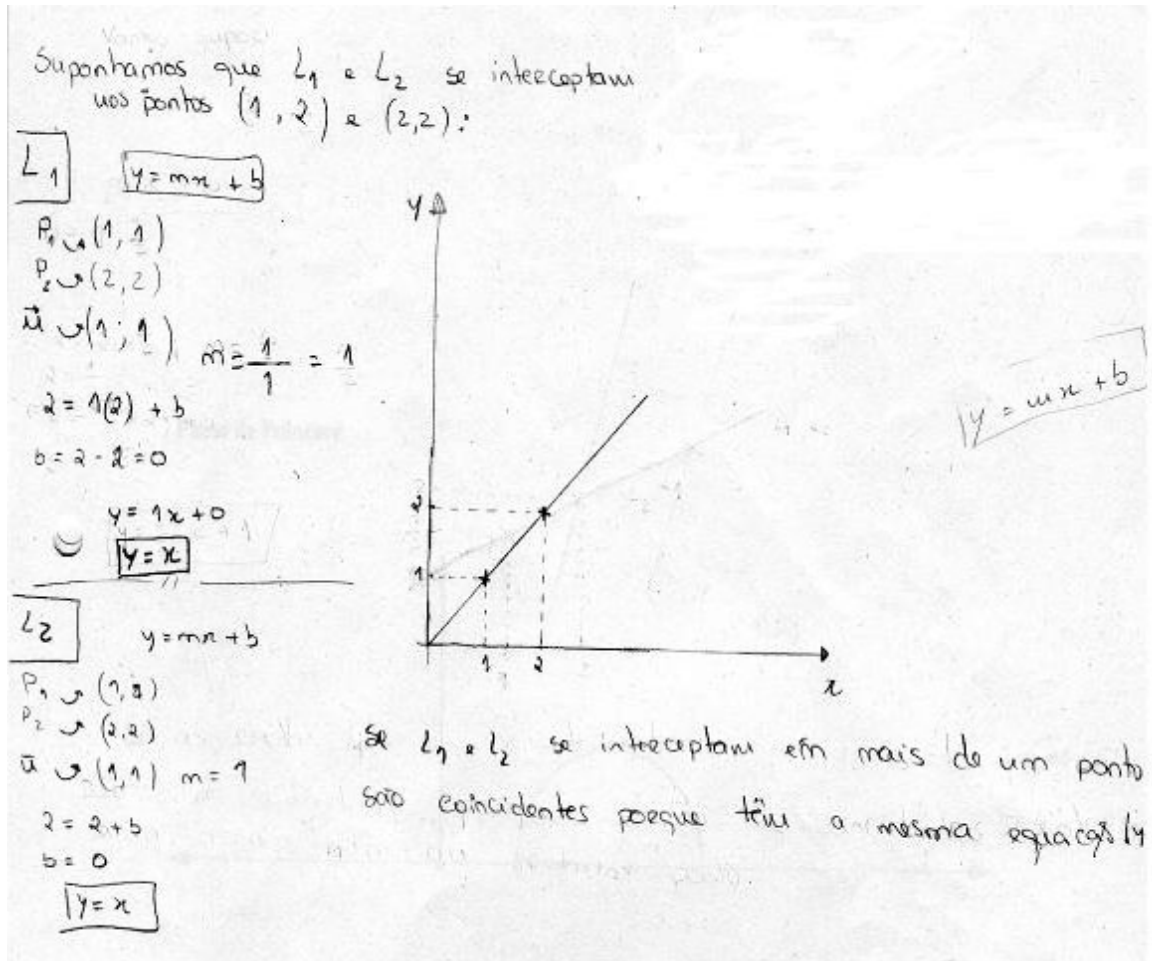 Suponhamos que L1 e L2 se interceptam
nos pontos (1, 2) e (2,2):
L1
y = mx + b
P1 (1, 1)
P2 (2, 2)
ū (1, 1)
m = 1/1 = 1
2 = 1(2) + b
b = 2 - 2 = 0
y = 1x + 0
y = x
L2
y = mx + b
P1
P2 (2,2)
ū (1,1) m = 1
2 = 2 + b
b = 0
y = x
y
2
1
1 2
x
y = mx + b
se L1 e L2 se interceptam em mais de um ponto
são coincidentes porque têm a mesma equação